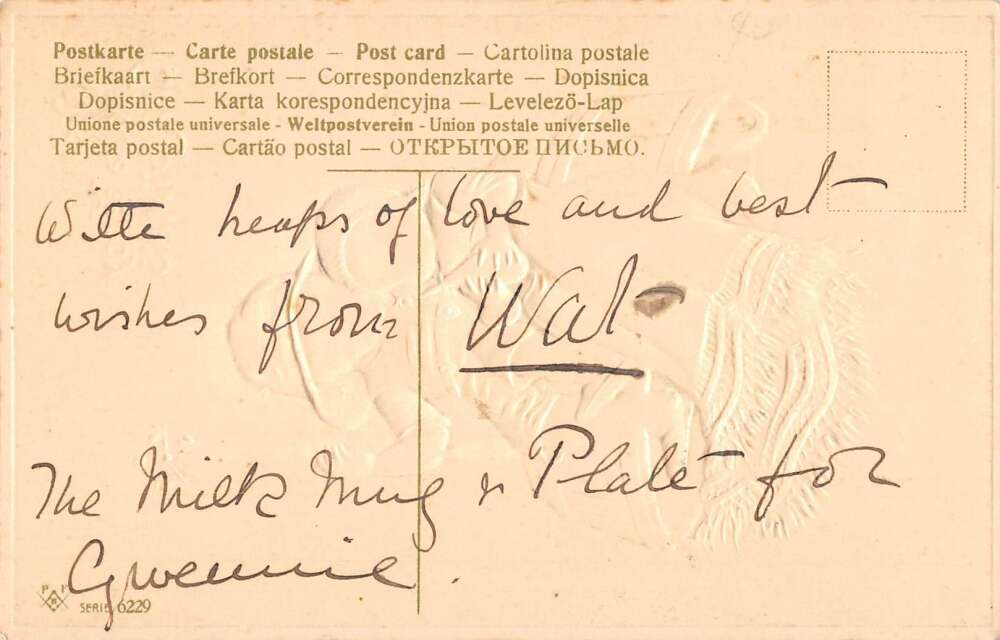 Postkarte — Carte postale — Post card — Cartolina postale
Briefkaart — Brefkort — Correspondenzkarte — Dopisnica
Dopisnice — Karta korespondencyjna — Levelezö-Lap
Unione postale universale - Weltpostverein - Union postale universelle
Tarjeta postal — Cartão postal — ОТКРЫТОЕ ПИСЬМО.
With heaps of love and best
wishes from Wat
The Milk Mug & Plate for
Gwennie.
SERIE 6229